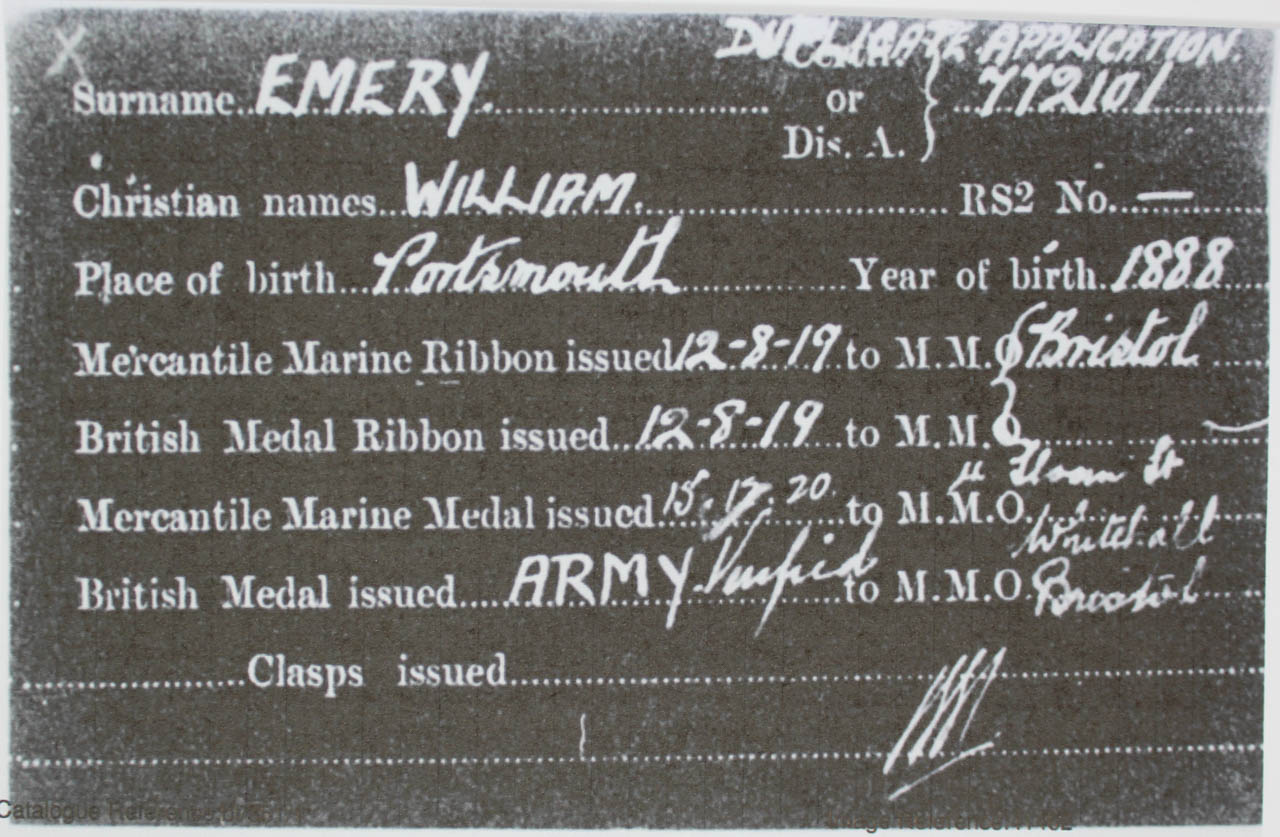 X DUPLICATE APPLICATION.
Surname EMERY. or 772101
Dis. A.
Christian names WILLIAM. RS2 No. —
Place of birth Portsmouth Year of birth 1888
Mercantile Marine Ribbon issued 12-8-19 to M.M.O Bristol
British Medal Ribbon issued 12-8-19 to M.M.O
St
Mercantile Marine Medal issued 15. 12. 20 to M.M.O.
Whitehall
British Medal issued ARMY Verified to M.M.O Bristol
Clasps issued
Catalogue Reference
Image Reference